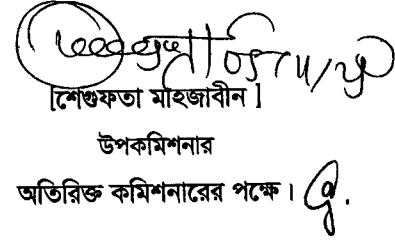 [শেগুফতা মাহজাবীন]
উপকমিশনার
অতিরিক্ত কমিশনারের পক্ষে।